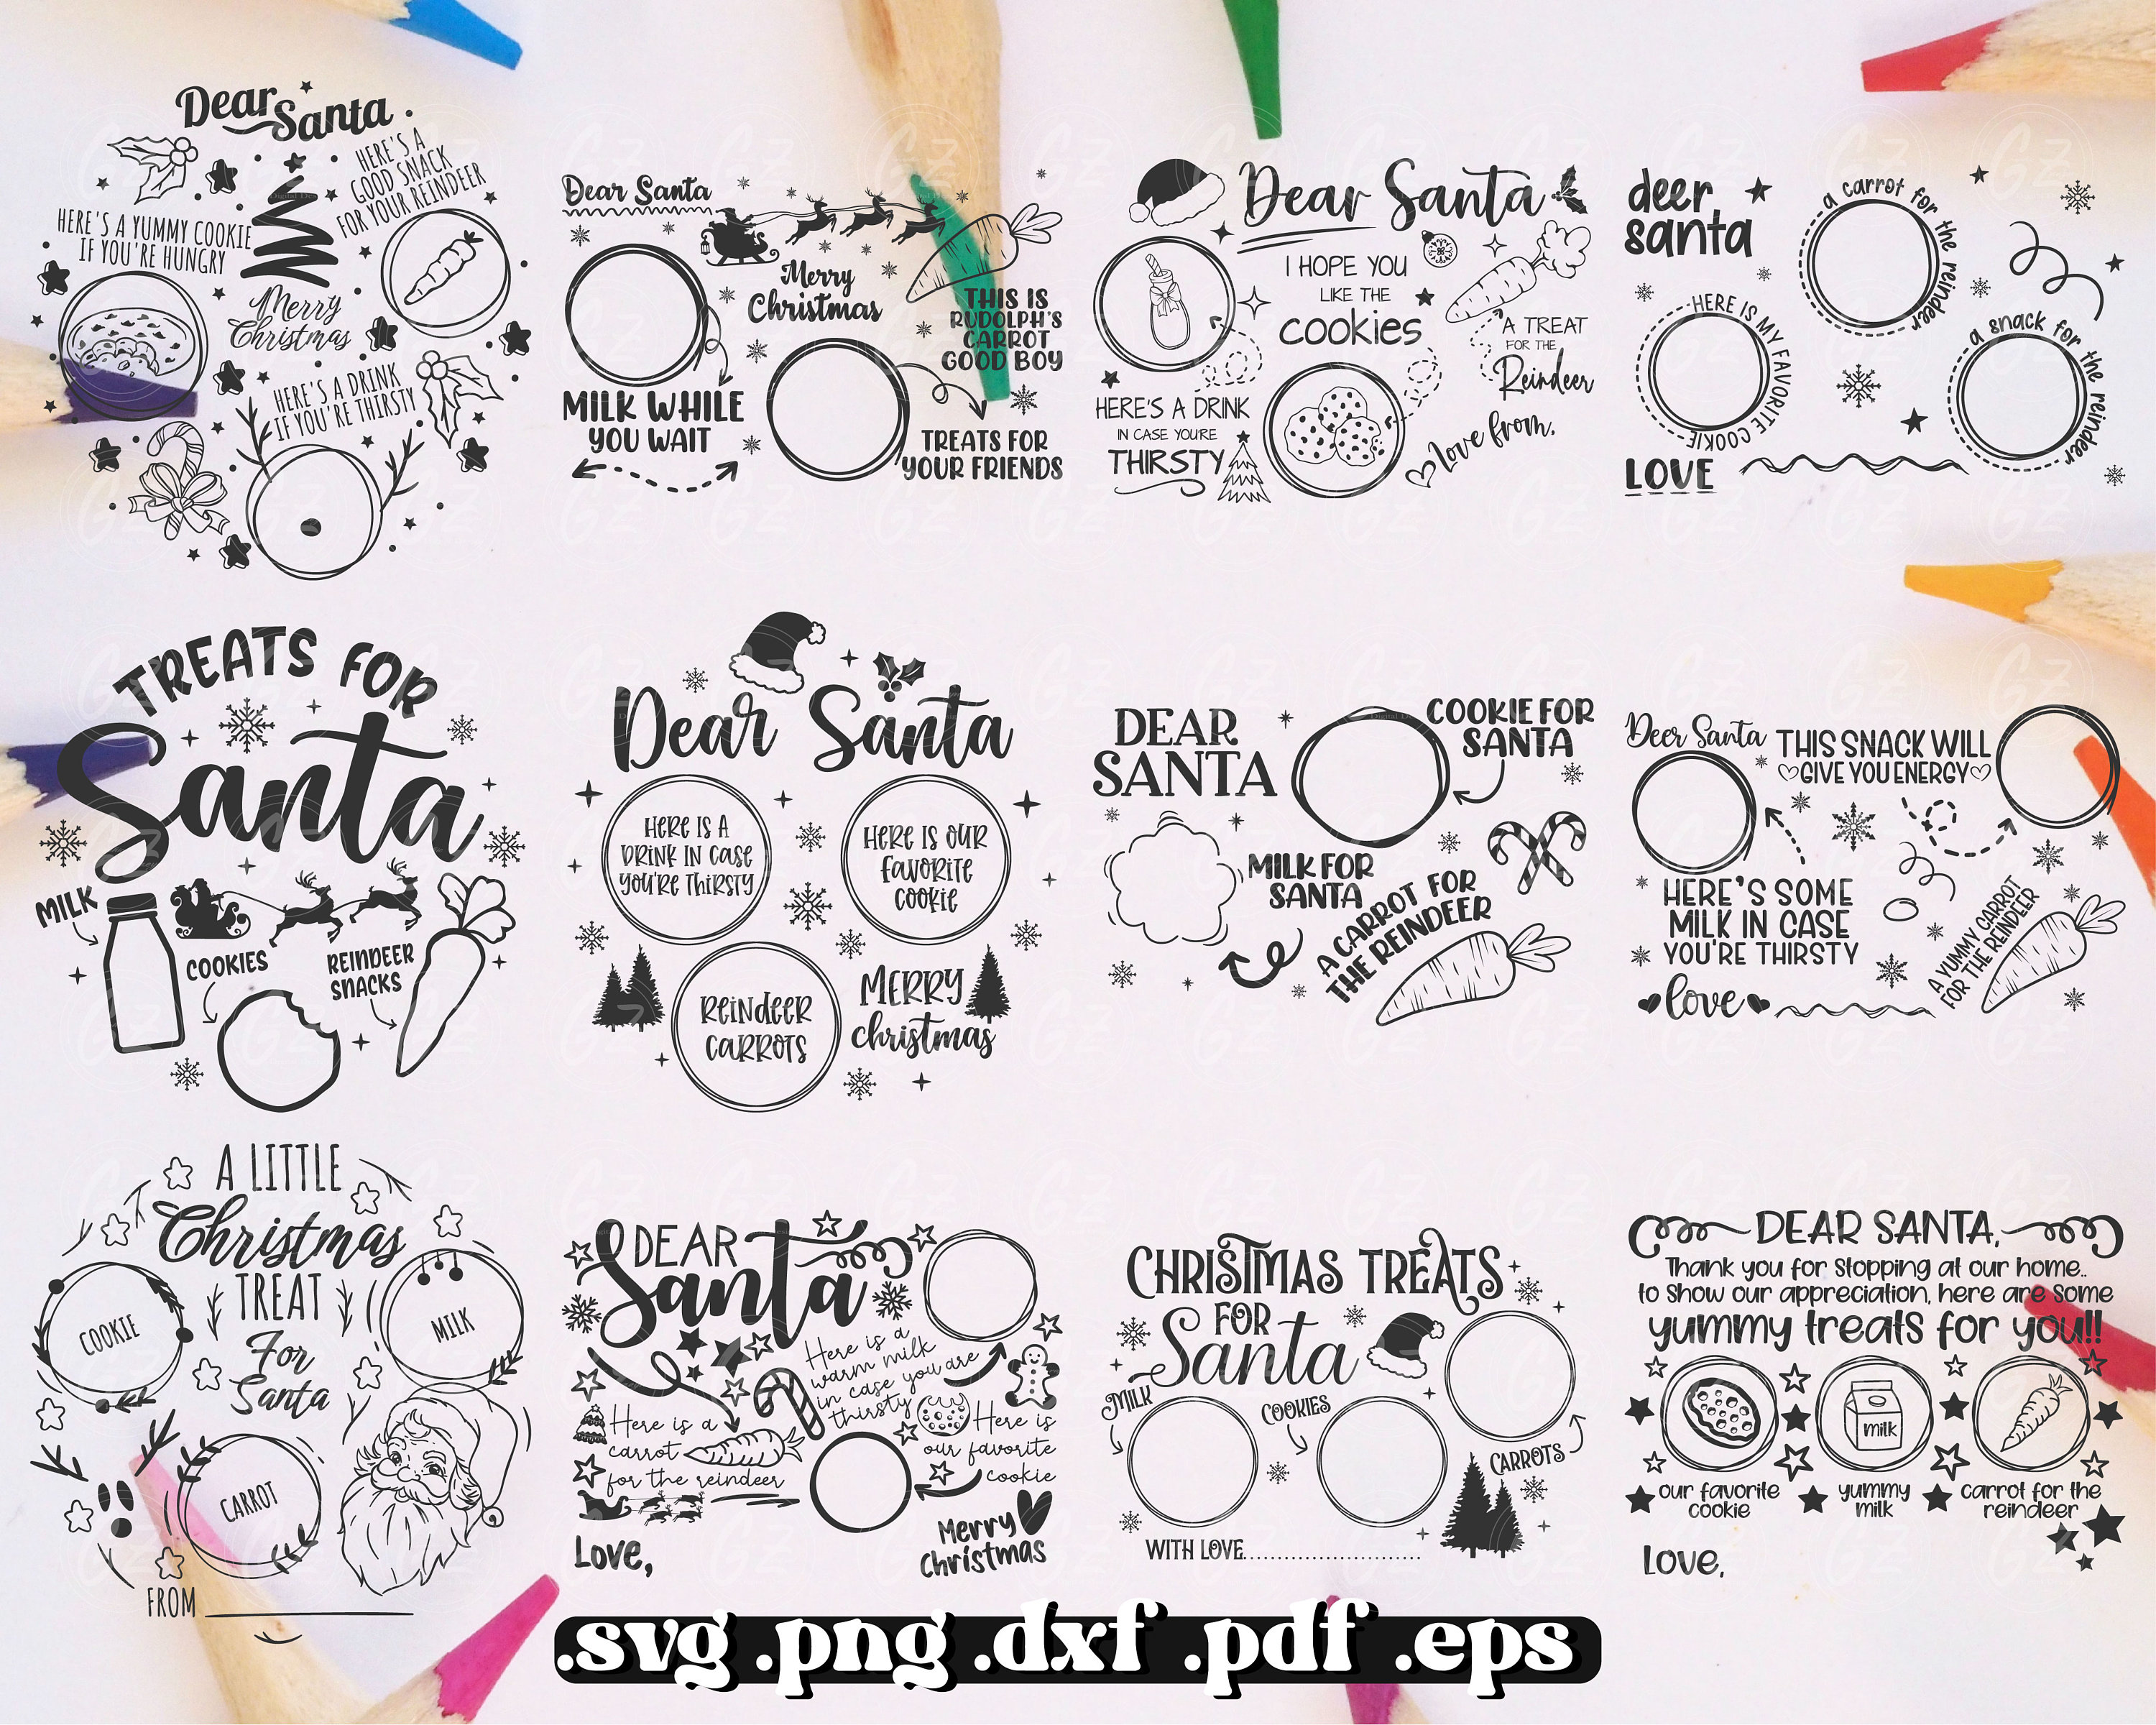 Dear Santa
HERE'S A
GOOD SNACK
FOR YOUR REINDEER
HERE'S A YUMMY COOKIE
IF YOU'RE HUNGRY
Merry
Christmas
HERE'S A DRINK
IF YOU'RE THIRSTY
Dear Santa
Merry
Christmas
THIS IS
RUDOLPH'S
CARROT
GOOD BOY
MILK WHILE
YOU WAIT
TREATS FOR
YOUR FRIENDS
Dear Santa
I HOPE YOU
LIKE THE
cookies
A TREAT
FOR THE
Reindeer
HERE'S A DRINK
IN CASE YOU'RE
THIRSTY
Love from,
deer
santa
a carrot for the reindeer
HERE IS MY FAVORITE COOKIE
a snack for the reindeer
LOVE
TREATS FOR
Santa
MILK
COOKIES
REINDEER
SNACKS
Dear Santa
HERE IS A
DRINK IN CASE
YOU'RE THIRSTY
HERE IS OUR
FAVORITE
COOKIE
REINDEER
CARROTS
MERRY
christmas
DEAR
SANTA
COOKIE FOR
SANTA
MILK FOR
SANTA
A CARROT FOR
THE REINDEER
Deer Santa
THIS SNACK WILL
GIVE YOU ENERGY
HERE'S SOME
MILK IN CASE
YOU'RE THIRSTY
A YUMMY CARROT
FOR THE REINDEER
love
A LITTLE
Christmas
TREAT
For
Santa
COOKIE
MILK
CARROT
FROM
DEAR
Santa
Here is a
warm milk
in case you are
thirsty
Here is a
carrot
for the reindeer
Here is
our favorite
cookie
Merry
Christmas
Love,
CHRISTMAS TREATS
FOR
Santa
MILK
COOKIES
CARROTS
WITH LOVE..............................
DEAR SANTA,
Thank you for stopping at our home..
to show our appreciation, here are some
yummy treats for you!!
milk
our favorite
cookie
yummy
milk
carrot for the
reindeer
Love,
.svg .png .dxf .pdf .eps